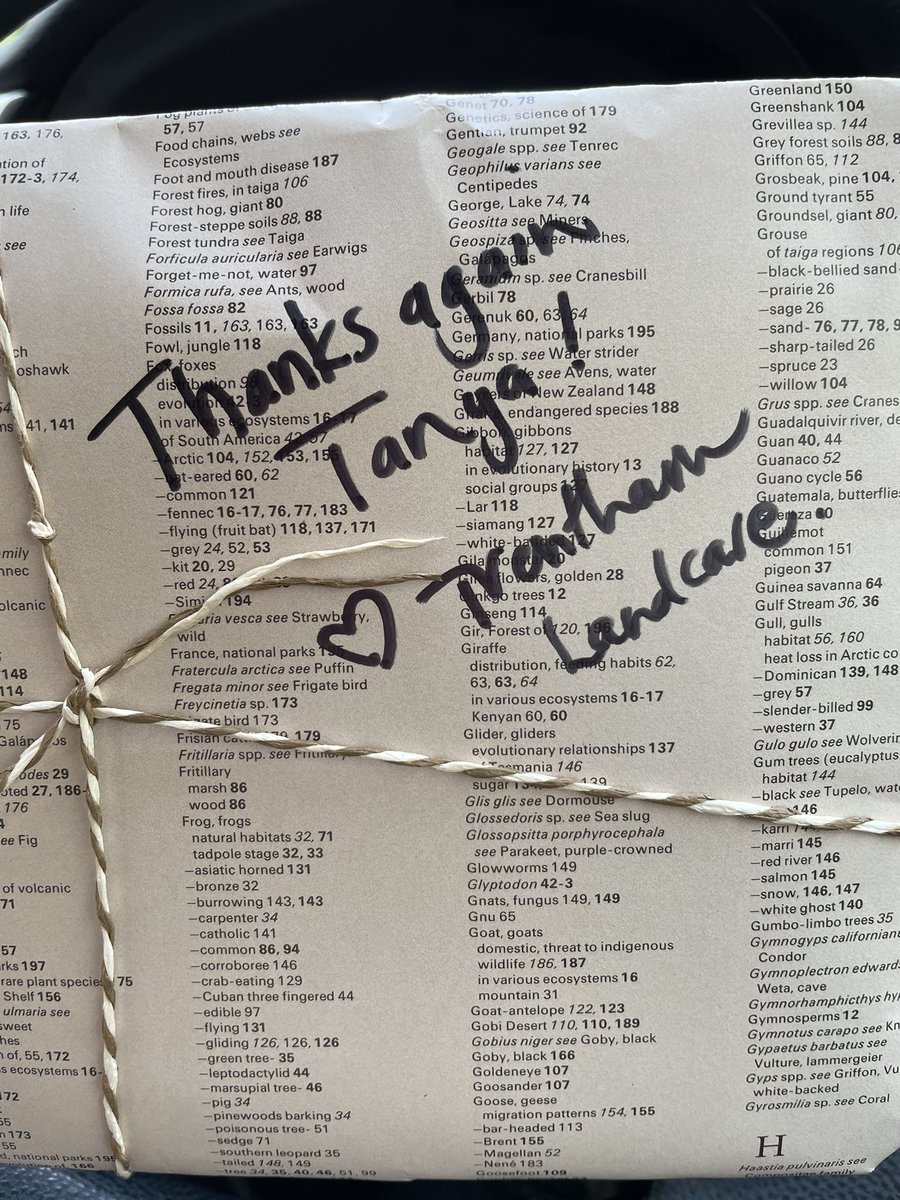 Thanks again
Tanya!
♡ Trentham
Landcare
163, 176,
172-3, 174,
n life
see
57, 57
Food chains, webs see
Ecosystems
Foot and mouth disease 187
Forest fires, in taiga 106
Forest hog, giant 80
Forest-steppe soils 88, 88
Forest tundra see Taiga
Forficula auricularia see Earwigs
Forget-me-not, water 97
Formica rufa, see Ants, wood
Fossa fossa 82
Fossils 11, 163, 163, 163
Fowl, jungle 118
Fox, foxes
distribution
evolution 42-3
in various ecosystems 16-17
of South America
Arctic 104, 152, 153, 156
–bat-eared 60, 62
–common 121
–fennec 16-17, 76, 77, 183
–flying (fruit bat) 118, 137, 171
–grey 24, 52, 53
–kit 20, 29
–red 24,
194
vesca see Strawberry,
wild
France, national parks 195
Fratercula arctica see Puffin
Fregata minor see Frigate bird
Freycinetia sp. 173
Frigate bird 173
Frisian 179
Fritillaria spp. see Fritillary
Fritillary
marsh 86
wood 86
Frog, frogs
natural habitats 32, 71
tadpole stage 32, 33
–asiatic horned 131
–bronze 32
–burrowing 143, 143
–carpenter 34
–catholic 141
–common 86, 94
–corroboree 146
–crab-eating 129
–Cuban three fingered 44
–edible 97
–flying 131
–gliding 126, 126, 126
–green tree- 35
–leptodactylid 44
–marsupial tree- 46
–pig 34
–pinewoods barking 34
–poisonous tree- 51
–sedge 71
–southern leopard 35
–tailed 148, 149
–tree 34, 35, 40, 46, 51, 99
Genet 70, 78
Genetics, science of 179
Gentian, trumpet 92
Geogale spp. see Tenrec
Geophilus varians see
Centipedes
George, Lake 74, 74
Geositta see Miners
Geospiza sp. see Finches,
Galapagos
Geranium sp. see Cranesbill
Gerbil 78
Gerenuk 60, 63, 64
Germany, national parks 195
Gerris sp. see Water strider
Geum see Avens, water
of New Zealand 148
endangered species 188
Gibbon, gibbons
habitat 127, 127
in evolutionary history 13
social groups 127
–Lar 118
–siamang 127
–white-banded 127
Gila monster
flowers, golden 28
Ginkgo trees 12
Ginseng 114
Gir, Forest of 120, 196
Giraffe
distribution, feeding habits 62,
63, 63, 64
in various ecosystems 16-17
Kenyan 60, 60
Glider, gliders
evolutionary relationships 137
of Tasmania 146
sugar 134, 139
Glis glis see Dormouse
Glossedoris sp. see Sea slug
Glossopsitta porphyrocephala
see Parakeet, purple-crowned
Glowworms 149
Glyptodon 42-3
Gnats, fungus 149, 149
Gnu 65
Goat, goats
domestic, threat to indigenous
wildlife 186, 187
in various ecosystems 16
mountain 31
Goat-antelope 122, 123
Gobi Desert 110, 110, 189
Gobius niger see Goby, black
Goby, black 166
Goldeneye 107
Goosander 107
Goose, geese
migration patterns 154, 155
–bar-headed 113
–Brent 155
–Magellan 52
–Nené 183
Goosefoot 109
Greenland 150
Greenshank 104
Grevillea sp. 144
Grey forest soils 88, 8
Griffon 65, 112
Grosbeak, pine 104,
Ground tyrant 55
Groundsel, giant 80,
Grouse
of taiga regions 106
–black-bellied sand-
–prairie 26
–sage 26
–sand- 76, 77, 78, 9
–sharp-tailed 26
–spruce 23
–willow 104
Grus spp. see Cranes
Guadalquivir river, de
Guan 40, 44
Guanaco 52
Guano cycle 56
Guatemala, butterflie
Guereza 80
Guillemot
common 151
pigeon 37
Guinea savanna 64
Gulf Stream 36, 36
Gull, gulls
habitat 56, 160
heat loss in Arctic co
–Dominican 139, 148
–grey 57
–slender-billed 99
–western 37
Gulo gulo see Wolverin
Gum trees (eucalyptus
habitat 144
–black see Tupelo, wate
146
–karri 144
–marri 145
–red river 146
–salmon 145
–snow, 146, 147
–white ghost 140
Gumbo-limbo trees 35
Gymnogyps californianu
Condor
Gymnoplectron edwards
Weta, cave
Gymnorhamphicthys hyp
Gymnosperms 12
Gymnotus carapo see Kn
Gypaetus barbatus see
Vulture, lammergeier
Gyps spp. see Griffon, Vu
white-backed
Gyrosmilia sp. see Coral
H
Haastia pulvinaris see
Compositae family